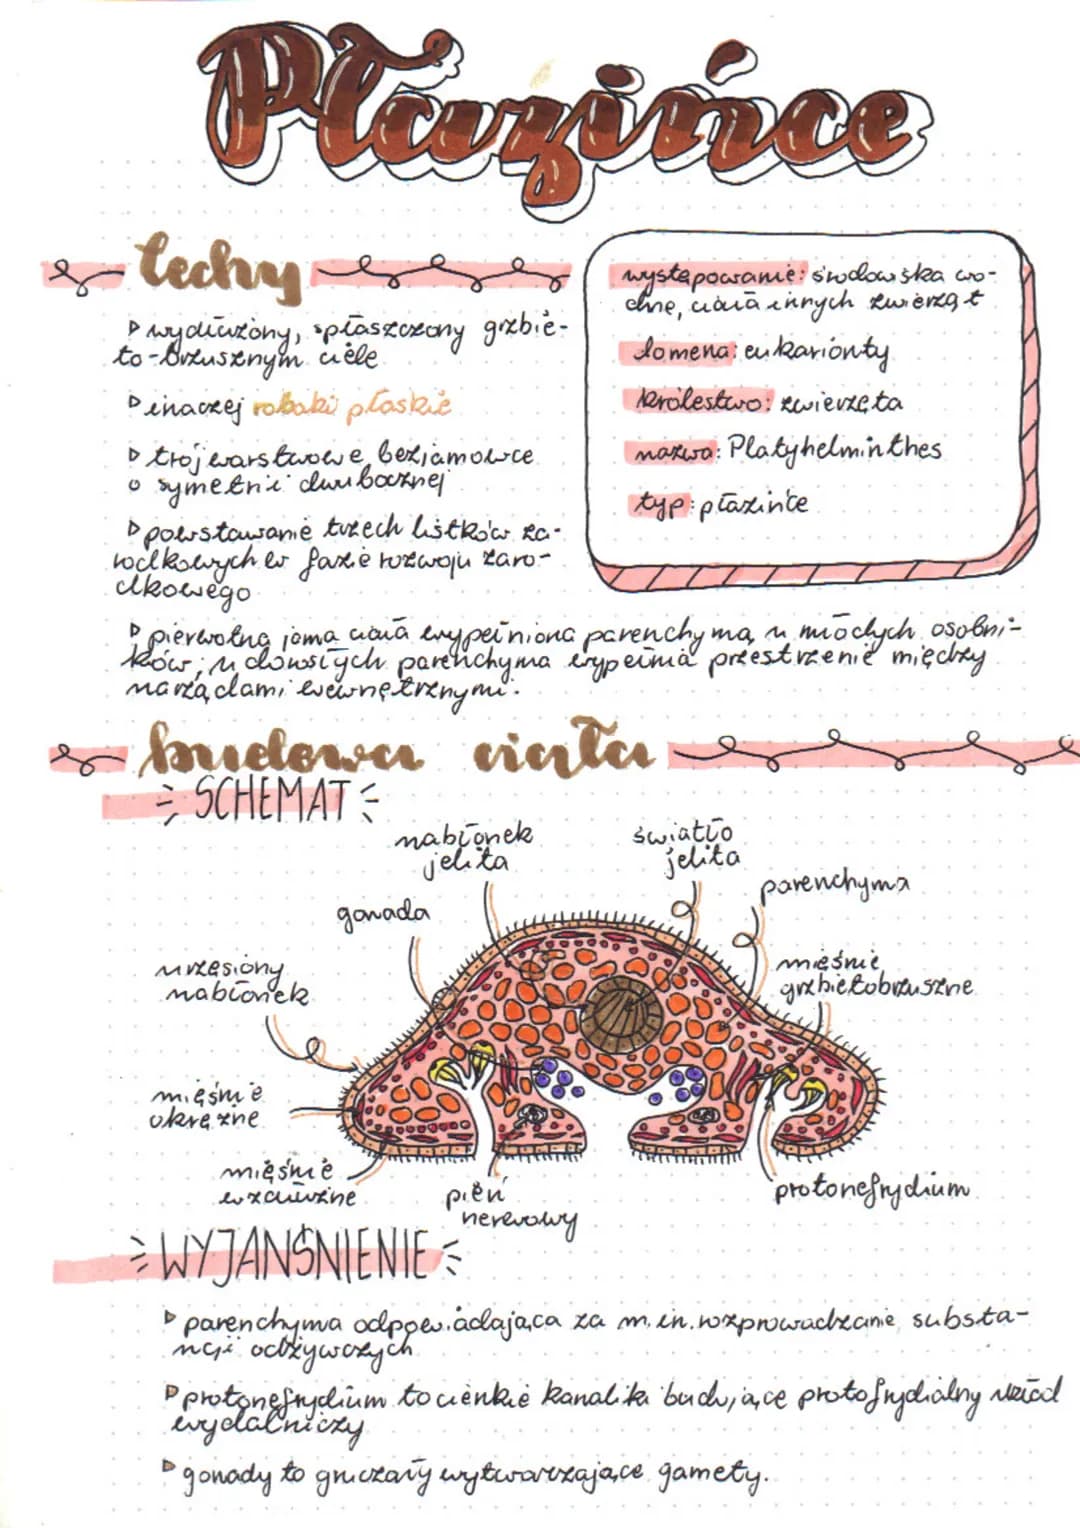 Płazińce
cechy
wydłużony, spłaszczony grzbie-
to-brzusznym ciele
inaczej robaki płaskie
trójwarstwowe bezjamowce
o symetrii dwubocznej
powstawanie trzech listków za-
rodkowych w fazie rozwoju zaro-
dkowego
występowanie: środowiska wo-
dne, ciała innych zwierząt
domena: eukarionty
królestwo: zwierzęta
nazwa: Platyhelminthes
typ: płazińce
pierwotna jama ciała wypełniona parenchymą u młodych osobni-
ków; u dorosłych parenchyma wypełnia przestrzenie między
narządami wewnętrznymi.
budowa ciała
SCHEMAT
nabłonek
jelita
światło
jelita
parenchyma
gonada
mięśnie
grzbietobrzuszne
urzęsiony
nabłonek
mięśnie
okrężne
mięśnie
wzdłużne
pień
nerwowy
protonefrydium
WYJANŚNIENIE
parenchyma odpowiadająca za m.in. rozprowadzanie substa-
ncji odżywczych
protonefrydium to cienkie kanaliki budujące protofrydialny układ
wydalniczy
gonady to gruczoły wytwarzające gamety.